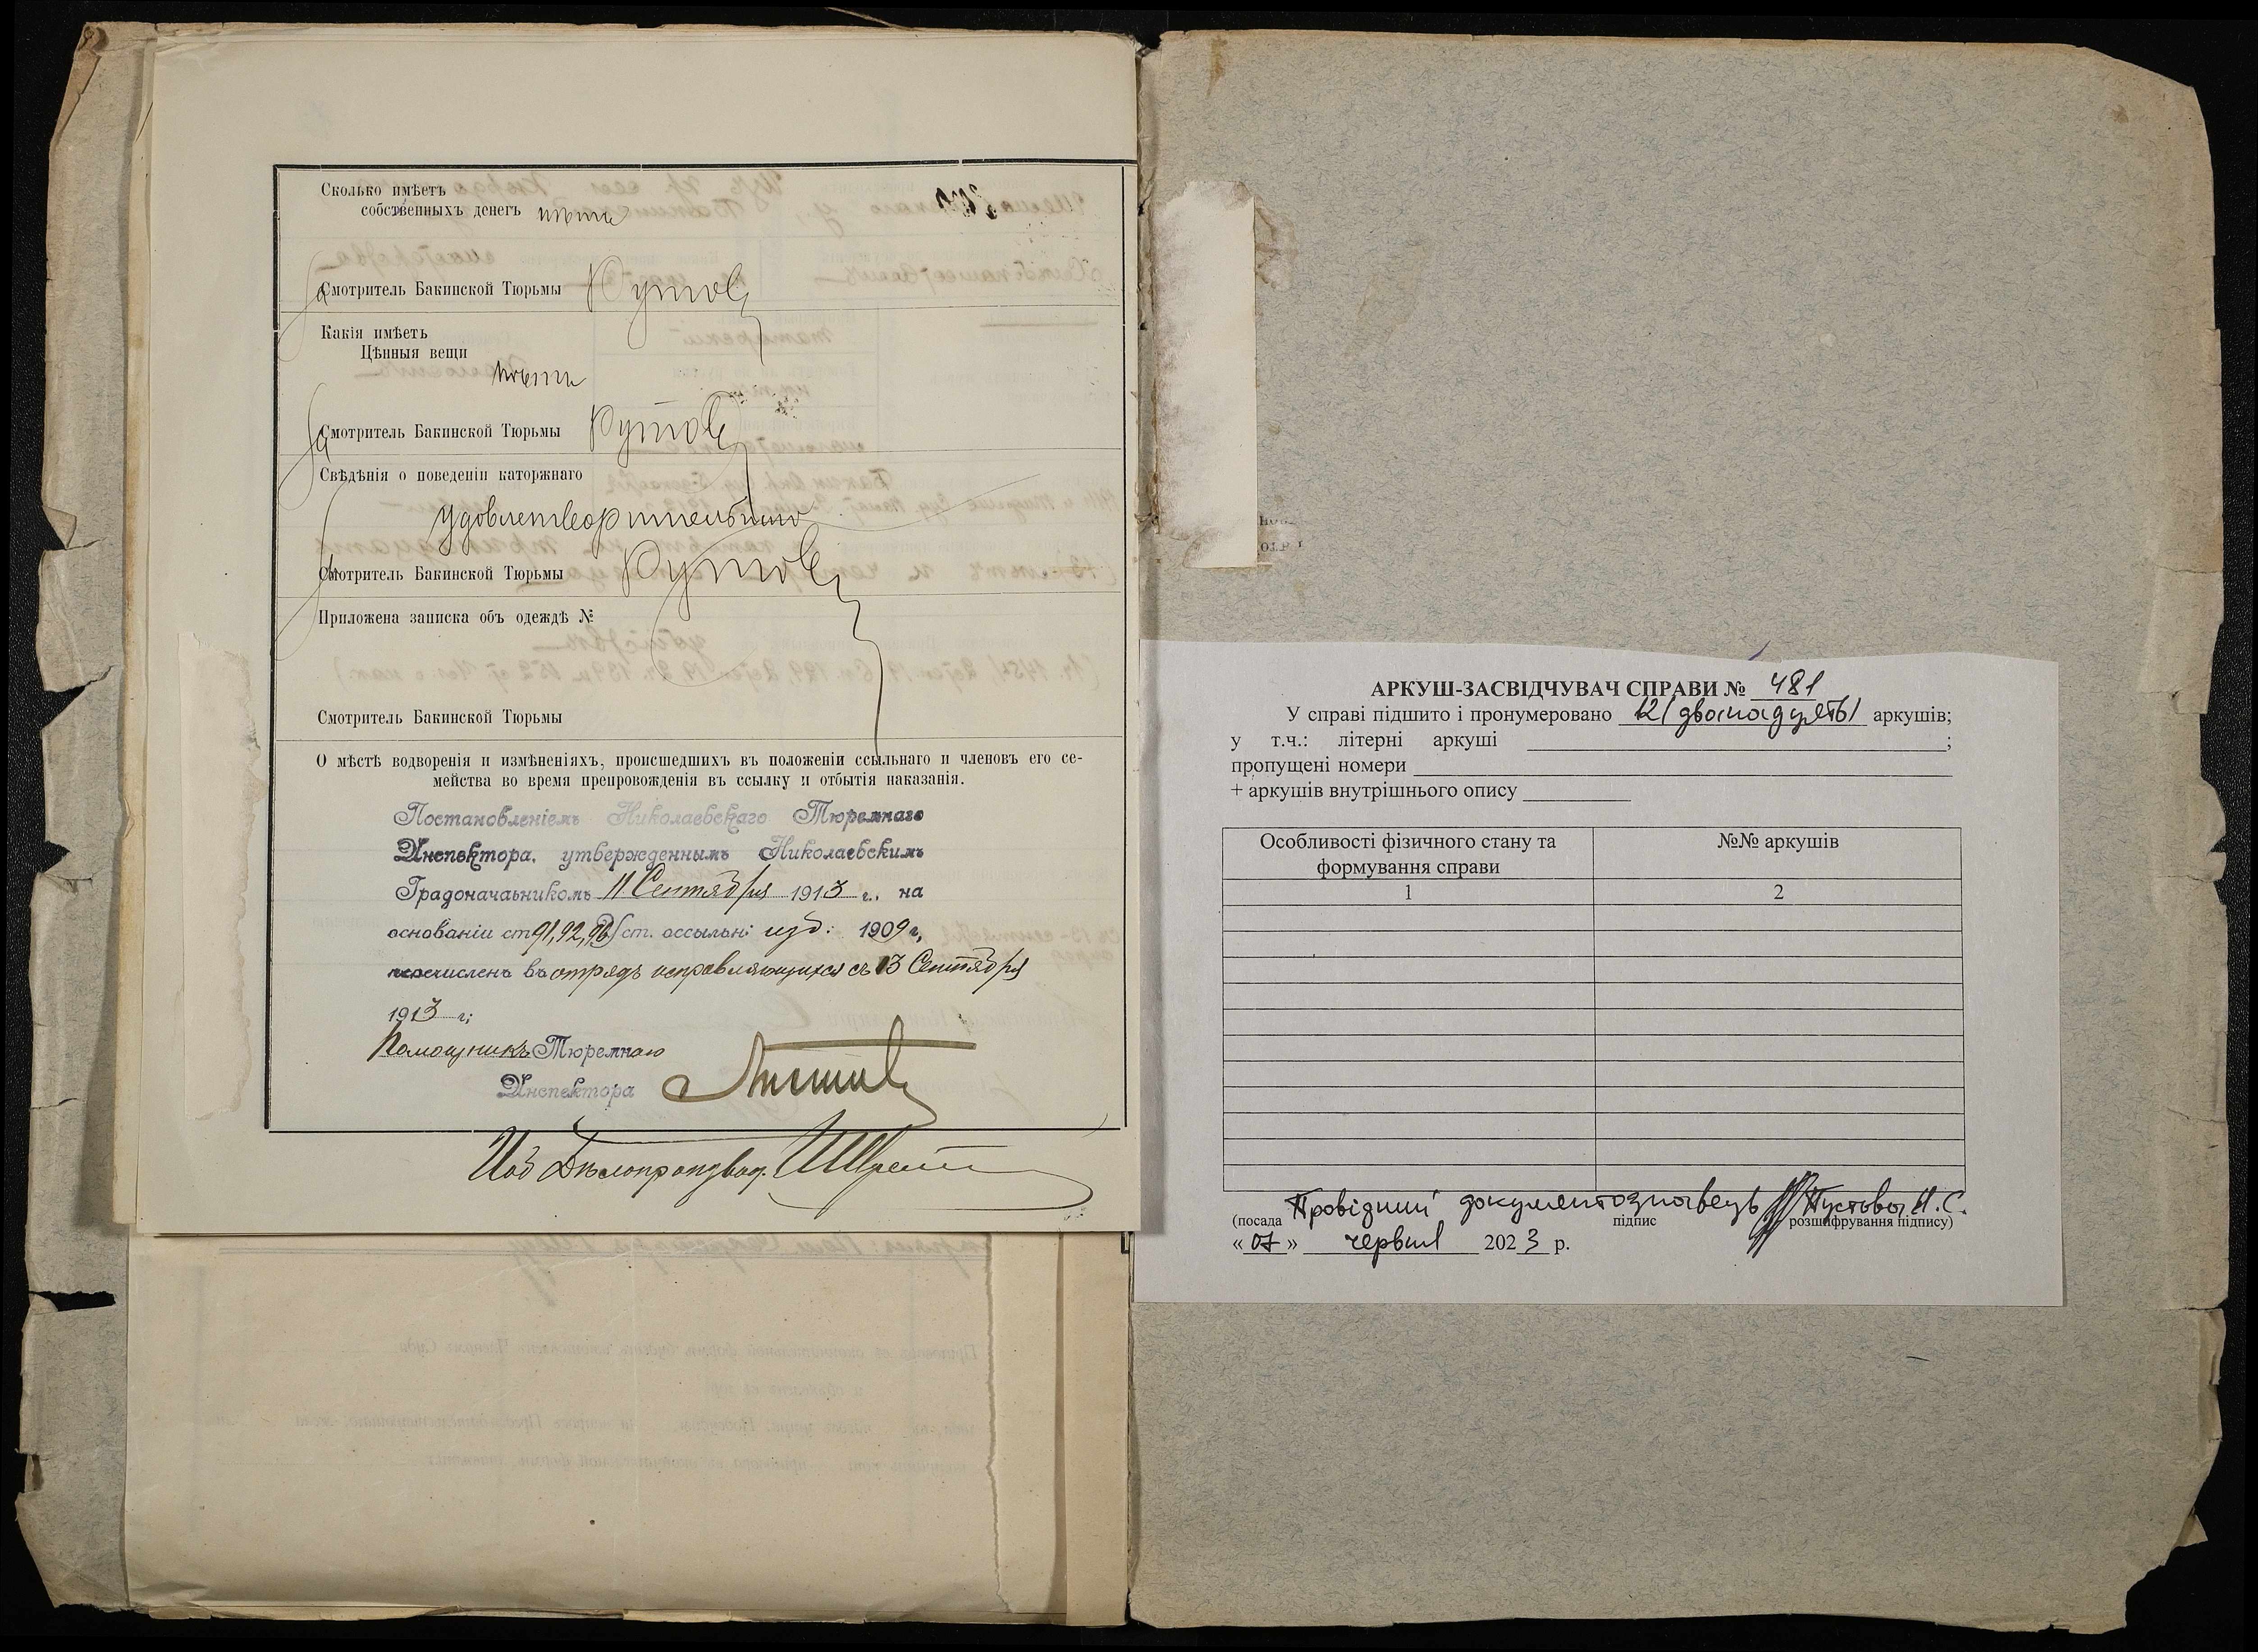 Сколько имѣетъ
собственныхъ денегъ нѣтъ
За Смотритель Бакинской Тюрьмы
Какія имѣетъ
Цѣнныя вещи
нѣтъ
За Смотритель Бакинской Тюрьмы
Свѣдѣнія о поведеніи каторжнаго
удовлетворительно
За Смотритель Бакинской Тюрьмы
Приложена записка объ одеждѣ №
Смотритель Бакинской Тюрьмы
О мѣстѣ водворенія и измѣненіяхъ, происшедшихъ въ положеніи ссыльнаго и членовъ его се-
мейства во время препровожденія въ ссылку и отбытія наказанія.
Постановленіемъ Николаевскаго Тюремнаго
Инспектора, утвержденнымъ Николаевскимъ
Градоначаьникомъ 11 Сентября 1913 г., на
основаніи ст 91, 92, 96 ст. оссыльн: изд: 1909 г,
перечисленъ въ отрядъ исправляющихся съ 13 Сентября
1913 г;
Помощникъ Тюремнаго
Инспектора
Дѣлопроизвод.
АРКУШ-ЗАСВІДЧУВАЧ СПРАВИ № 481
У справі підшито і пронумеровано 12 (дванадцять) аркушів;
у т.ч.: літерні аркуші ;
пропущені номери
+ аркушів внутрішнього опису
Особливості фізичного стану та
формування справи
№№ аркушів
1 2
Провідний документознавець Пустова Н. С.
(посада підпис розшифрування підпису)
« 07 » червня 2023 р.